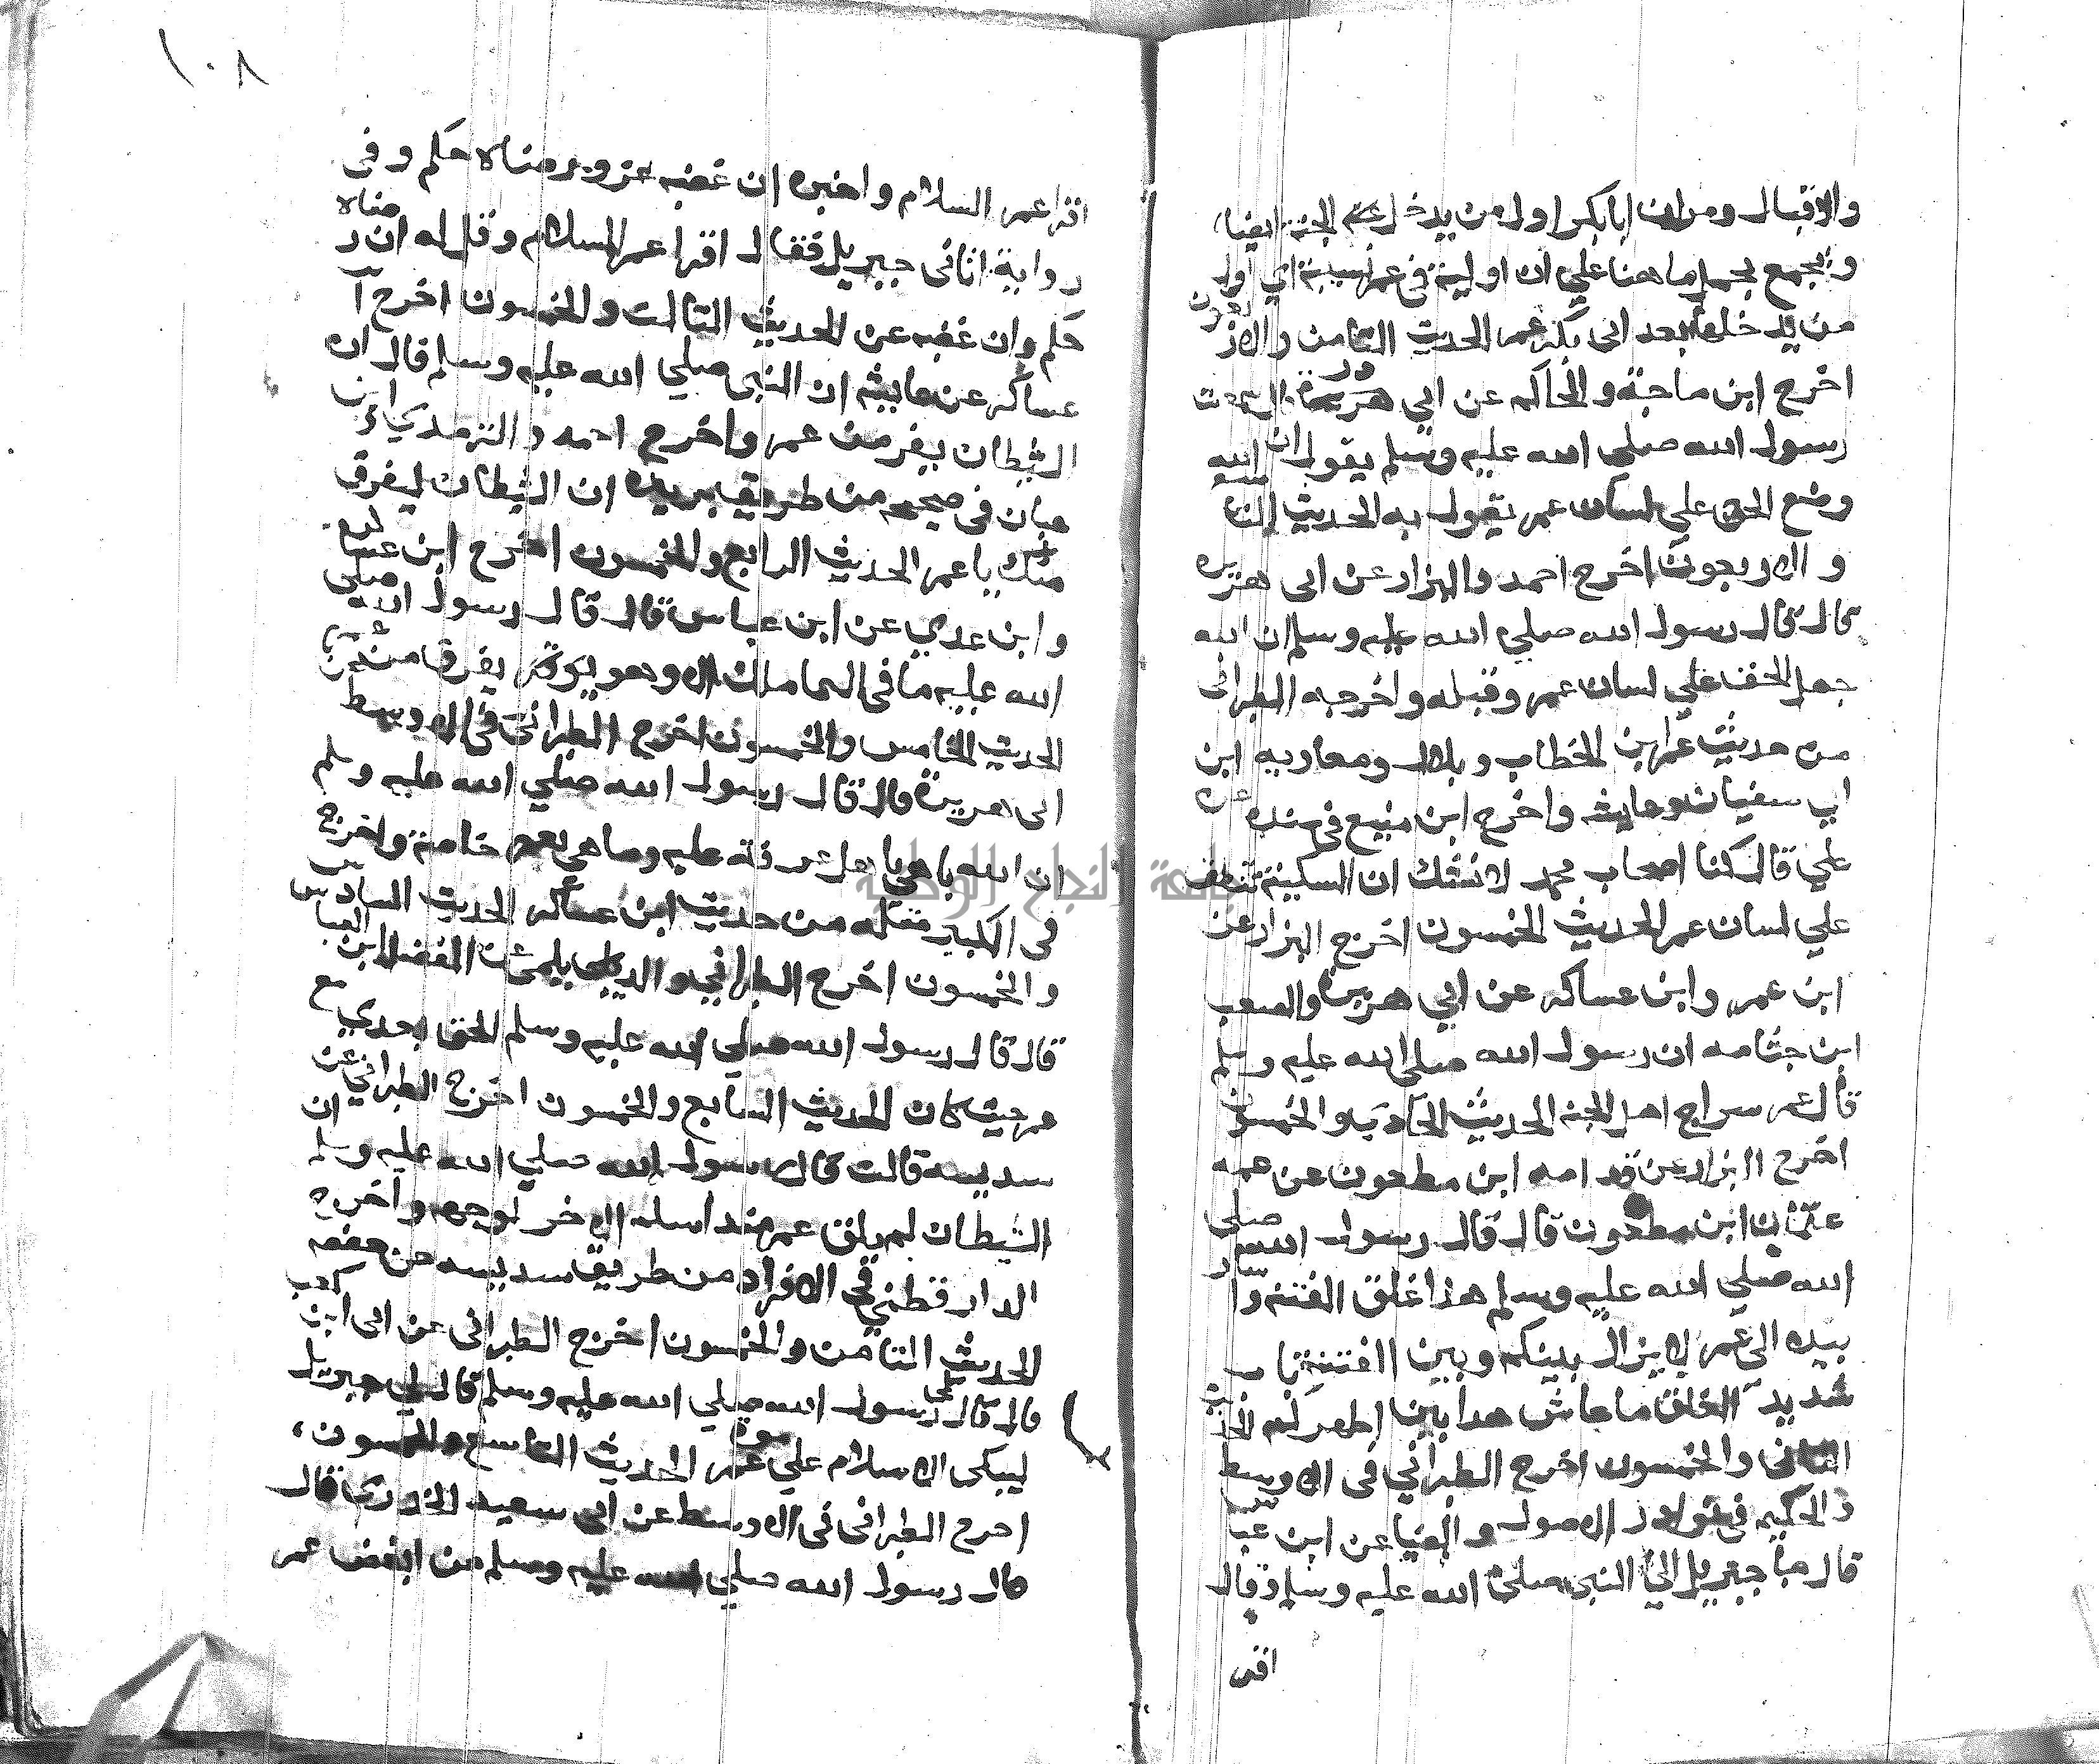 والاقبال ومر ان ابا بكر اول من يدخل الجنة ايضا
ويجمع بحمل ما هنا علي ان اولية في عمر نسبية اي اول
من يدخلها بعد ابى بكر عمر الحديث الثامن والاربعون
اخرج ابن ماجة والحاكم عن ابي هريرة قال سمعت
رسول الله صلي الله عليه وسلم يقول ان الله
وضع الحق علي لسان عمر يقول به الحديث التاسع
والاربعون اخرج احمد والبزار عن ابى هريره
قال قال رسول الله صلي الله عليه وسلم ان الله
جعل الحق علي لسان عمر وقبله واخرجه الطبرانى
من حديث عمر ابن الخطاب وبلال ومعاويه ابن
ابي سفيان وعايشه واخرج ابن منيع فى مسنده عن
علي قال كنا اصحاب محمد لا نشك ان السكينة تنطق
علي لسان عمر الحديث الخمسون اخرج البزار عن
ابن عمر وابن عساكر عن ابي هريرة والصعب
ابن جثامه ان رسول الله صلى الله عليه وسلم
قال عمر سراج اهل الجنه الحديث الحاديه والخمسون
اخرج البزار عن قدامه ابن مظعون عن عمه
عثمان ابن مظعون قال قال رسول الله صلى
الله صلي الله عليه وسلم هذا غلق الفتنه واشار
بيده الى عمر لا يزال بينكم وبين الفتنة باب
شديد الغلق ما عاش هذا بين اظهركم الحديث
الثانى والخمسون اخرج الطبراني فى الاوسط
والحكيم فى نوادر الاصول والضيا عن ابن عباس
قال جا جبريل الى النبى صلى الله عليه وسلم فقال
اقر
١٠٨
اقرا عمر السلام واخبره ان غضبه عز ورضاه حكم وفى
رواية اتانى جبريل فقال اقرا عمر السلام وقل له ان رضاه
حكم وان غضبه عز الحديث الثالث والخمسون اخرج ا
عساكر عن عايشه ان النبى صلي الله عليه وسلم قال ان
الشيطان يفر من عمر واخرج احمد والترمدي وابن
حبان فى صحيحه من طريق بريده ان الشيطان ليفرق
منك يا عمر الحديث الرابع والخمسون اخرج ابن عساكر
وابن عدي عن ابن عباس قال قال رسول الله صلى
الله عليه ما فى السما ملك الا وهو يوقر يفرق من
الحديث الخامس والخمسون اخرج الطبرانى فى الاوسط
ابى هريرة قال قال رسول الله صلي الله عليه وسلم
ان الله باهي باهل عرفة عليه وباهي بعمر خاصة واخرج
فى الكبير مثله من حديث ابن عساكر الحديث السادس
والخمسون اخرج الطبراني والديلمى الفضل ابن العباس
قال قال رسول الله صلي الله عليه وسلم الحق بعدي مع
عمر حيث كان الحديث السابع والخمسون اخرج الطبراني عن
سديسه قالت قال رسول الله صلي الله عليه وسلم ان
الشيطان لم يلق عمر منذ اسلم الا خر لوجهه واخرج
الدار قطني في الافراد من طريق سديسه عن حفصه
الحديث الثامن والخمسون اخرج الطبرانى عن ابى ابن كعب
قال قال رسول الله صلي الله عليه وسلم قال لي جبريل
ليبكى الاسلام علي موت عمر الحديث التاسع والخمسون
اخرج الطبرانى فى الاوسط عن ابى سعيد الخدرى قال
قال رسول الله صلي الله عليه وسلم من ابغض عمر
جامعة النجاح الوطنية